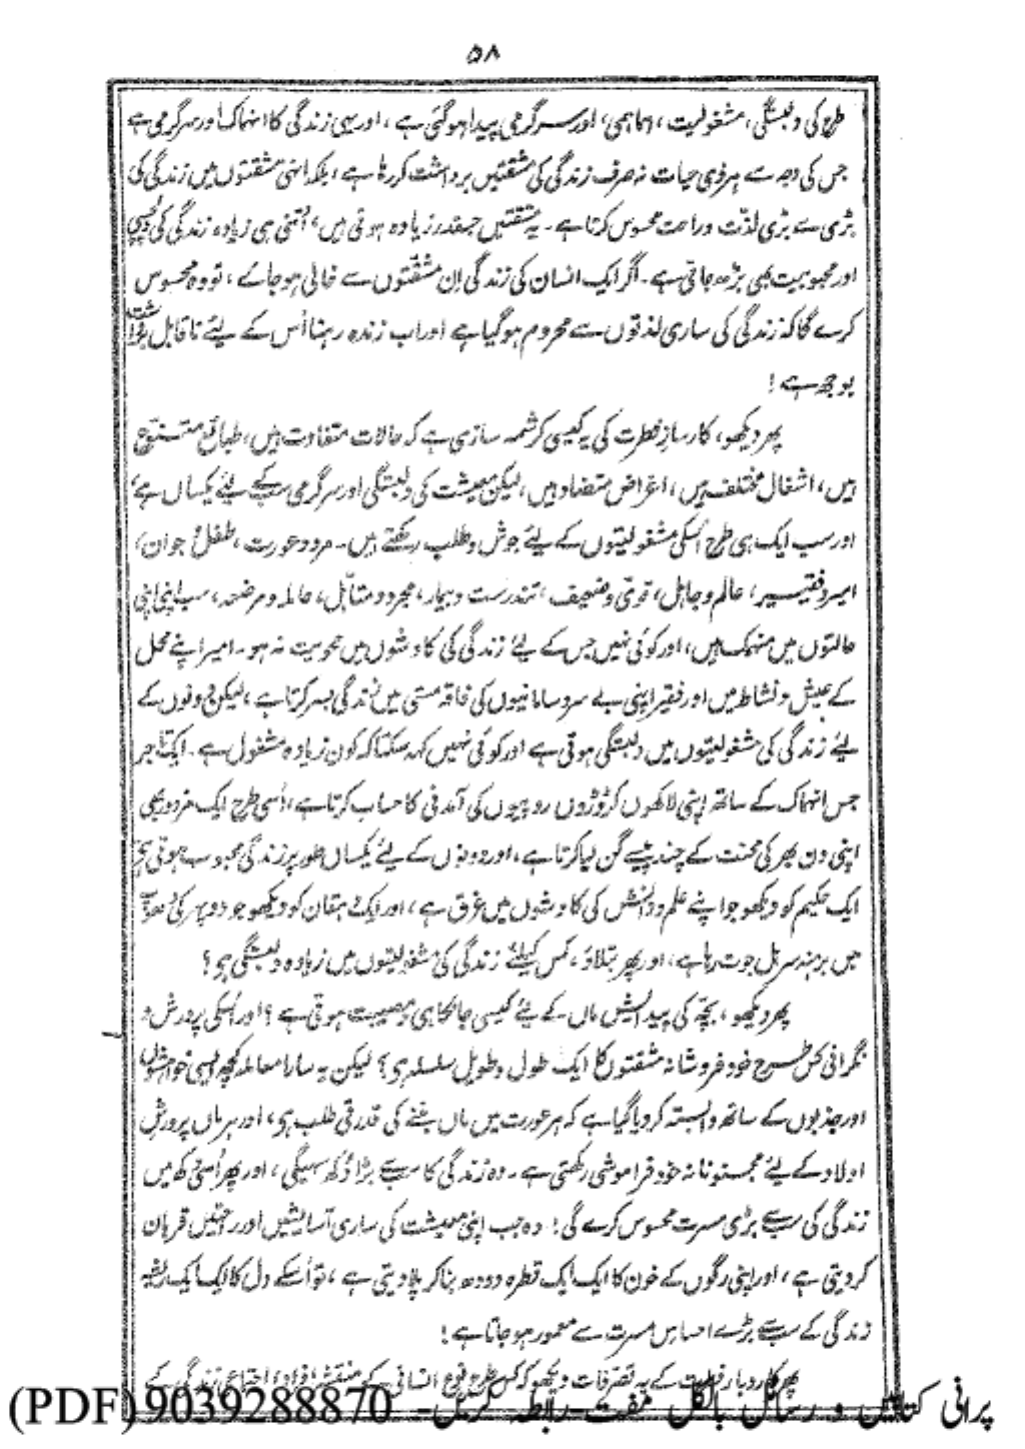 ۵۸
طرح کی دلبستگی، مشغولیت، ہماہمی، اور سرگرمی پیدا ہوگئی ہے، اور یہی زندگی کا انہماک اور سرگرمی ہے
جس کی وجہ سے ہر ذی حیات نہ صرف زندگی کی مشقتیں برداشت کر رہا ہے، بلکہ انہی مشقتوں میں زندگی کی
بڑی سے بڑی لذّت و راحت محسوس کرتا ہے۔ یہ مشقتیں جسقدر زیادہ ہوتی ہیں، اُتنی ہی زیادہ زندگی کی دلچسپی
اور محبوبیت بھی بڑھ جاتی ہے۔ اگر ایک انسان کی زندگی اِن مشقتوں سے خالی ہو جائے، تو وہ محسوس
کرے گا کہ زندگی کی ساری لذتوں سے محروم ہوگیا ہے اور اب زندہ رہنا اُس کے لیے ناقابل برداشت
بوجھ ہے!
پھر دیکھو، کارساز فطرت کی یہ کیسی کرشمہ سازی ہے کہ حالات متفاوت ہیں، طبائع متنوع
ہیں، اشغال مختلف ہیں، اغراض متضاد ہیں، لیکن معیشت کی دلبستگی اور سرگرمی سب کے لیے یکساں ہے،
اور سب ایک ہی طرح اُسکی مشغولیتوں کے لیے جوش و طلب رکھتے ہیں۔ مرد و عورت، طفل و جوان،
امیر و فقیر، عالم و جاہل، قوی و ضعیف، تندرست و بیمار، مجرد و متأہل، حاملہ و مرضعہ، سب اپنی اپنی
حالتوں میں منہمک ہیں، اور کوئی نہیں جس کے لیے زندگی کی کاوشوں میں محویت نہ ہو۔ امیر اپنے محل
کے عیش و نشاط میں اور فقیر اپنی بے سر و سامانیوں کی فاقہ مستی میں زندگی بسر کرتا ہے، لیکن دونوں کے
لیے زندگی کی مشغولیتوں میں دلبستگی ہوتی ہے اور کوئی نہیں کہہ سکتا کہ کون زیادہ مشغول ہے۔ ایک تاجر
جس انہماک کے ساتھ اپنی لاکھوں کڑوڑوں روپیوں کی آمدنی کا حساب کرتا ہے، اُسی طرح ایک مزدور بھی
اپنی دن بھر کی محنت کے چند پیسے گن لیا کرتا ہے، اور دونوں کے لیے یکساں طور پر زندگی محبوب ہوتی ہے
ایک حکیم کو دیکھو جو اپنے علم و دانش کی کاوشوں میں غرق ہے، اور ایک دہقان کو دیکھو جو دوپہر کی دھوپ
میں برہنہ سر ہل جوت رہا ہے، اور پھر بتلاؤ، کس کیلئے زندگی کی مشغولیتوں میں زیادہ دلبستگی ہو؟
پھر دیکھو، بچّہ کی پیدائش ماں کے لیے کیسی جانکاہی و مصیبت ہوتی ہے؟ اور اُسکی پرورش و
نگرانی کس طرح خود فروشانہ مشقتوں کا ایک طول و طویل سلسلہ ہی؟ لیکن یہ سارا معاملہ کچھ ایسی خواہشوں
اور جذبوں کے ساتھ وابستہ کر دیا گیا ہے کہ ہر عورت میں ماں بننے کی قدرتی طلب ہی، اور ہر ماں پرورش
اولاد کے لیے مجنونانہ خود فراموشی رکھتی ہے۔ وہ زندگی کا سب سے بڑا دُکھ سہیگی، اور پھر اُسی دکھ میں
زندگی کی سب سے بڑی مسرت محسوس کرے گی! وہ جب اپنی معیشت کی ساری آسایشیں اور راحتیں قربان
کر دیتی ہے، اور اپنی رگوں کے خون کا ایک ایک قطرہ دودھ بنا کر پلا دیتی ہے، تو اُسکے دل کا ایک ایک ریشہ
زندگی کے سب سے بڑے احساس مسرت سے معمور ہو جاتا ہے!
پھر کاروبار فطرت کے یہ تصرفات دیکھو کہ کس طرح نوع انسانی کے منتشر افراد اجتماعی زندگی کے
پرانی کتابیں و رسائل بالکل مفت رابطہ کریں۔ 9039288870 (PDF)